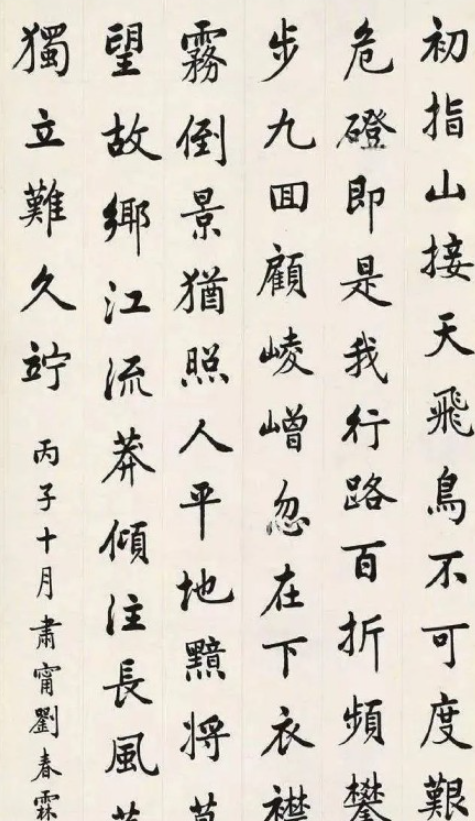 初指山接天飛鳥不可度艱
危磴即是我行路百折頻攀
步九囬顧崚嶒忽在下衣襟
霧倒景猶照人平地黯將
望故鄉江流莽傾注長風
獨立難久竚
丙子十月肅甯劉春霖